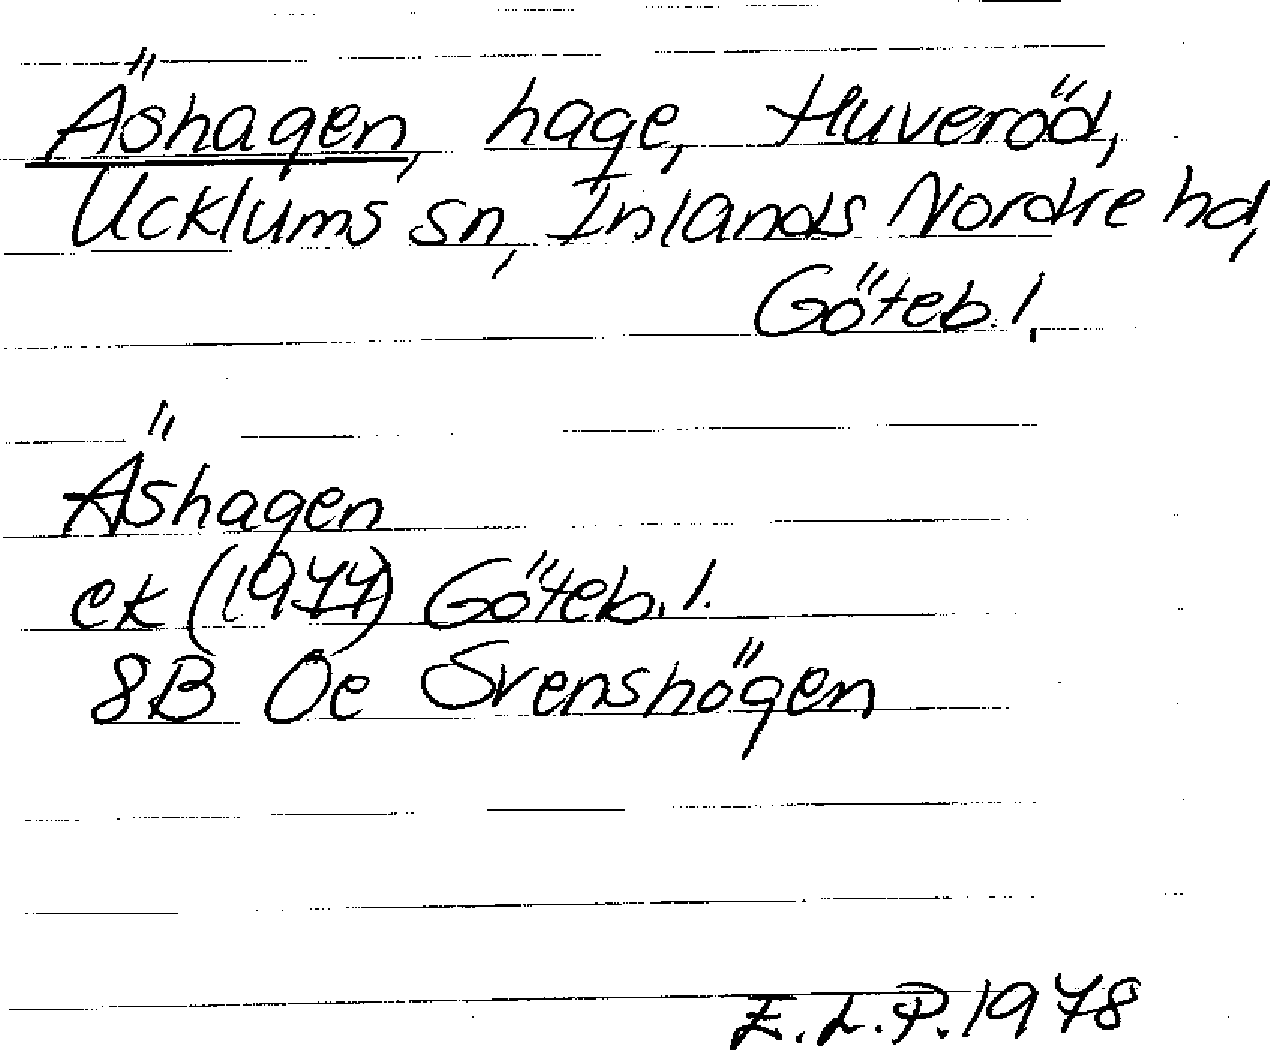 Äshagen, hage, Huveröd,
Ucklums sn, Inlands Nordre hd,
Göteb. l.
Äshagen
ek (1977) Göteb. l.
8B 0e Svenshögen
E.L.P. 1978